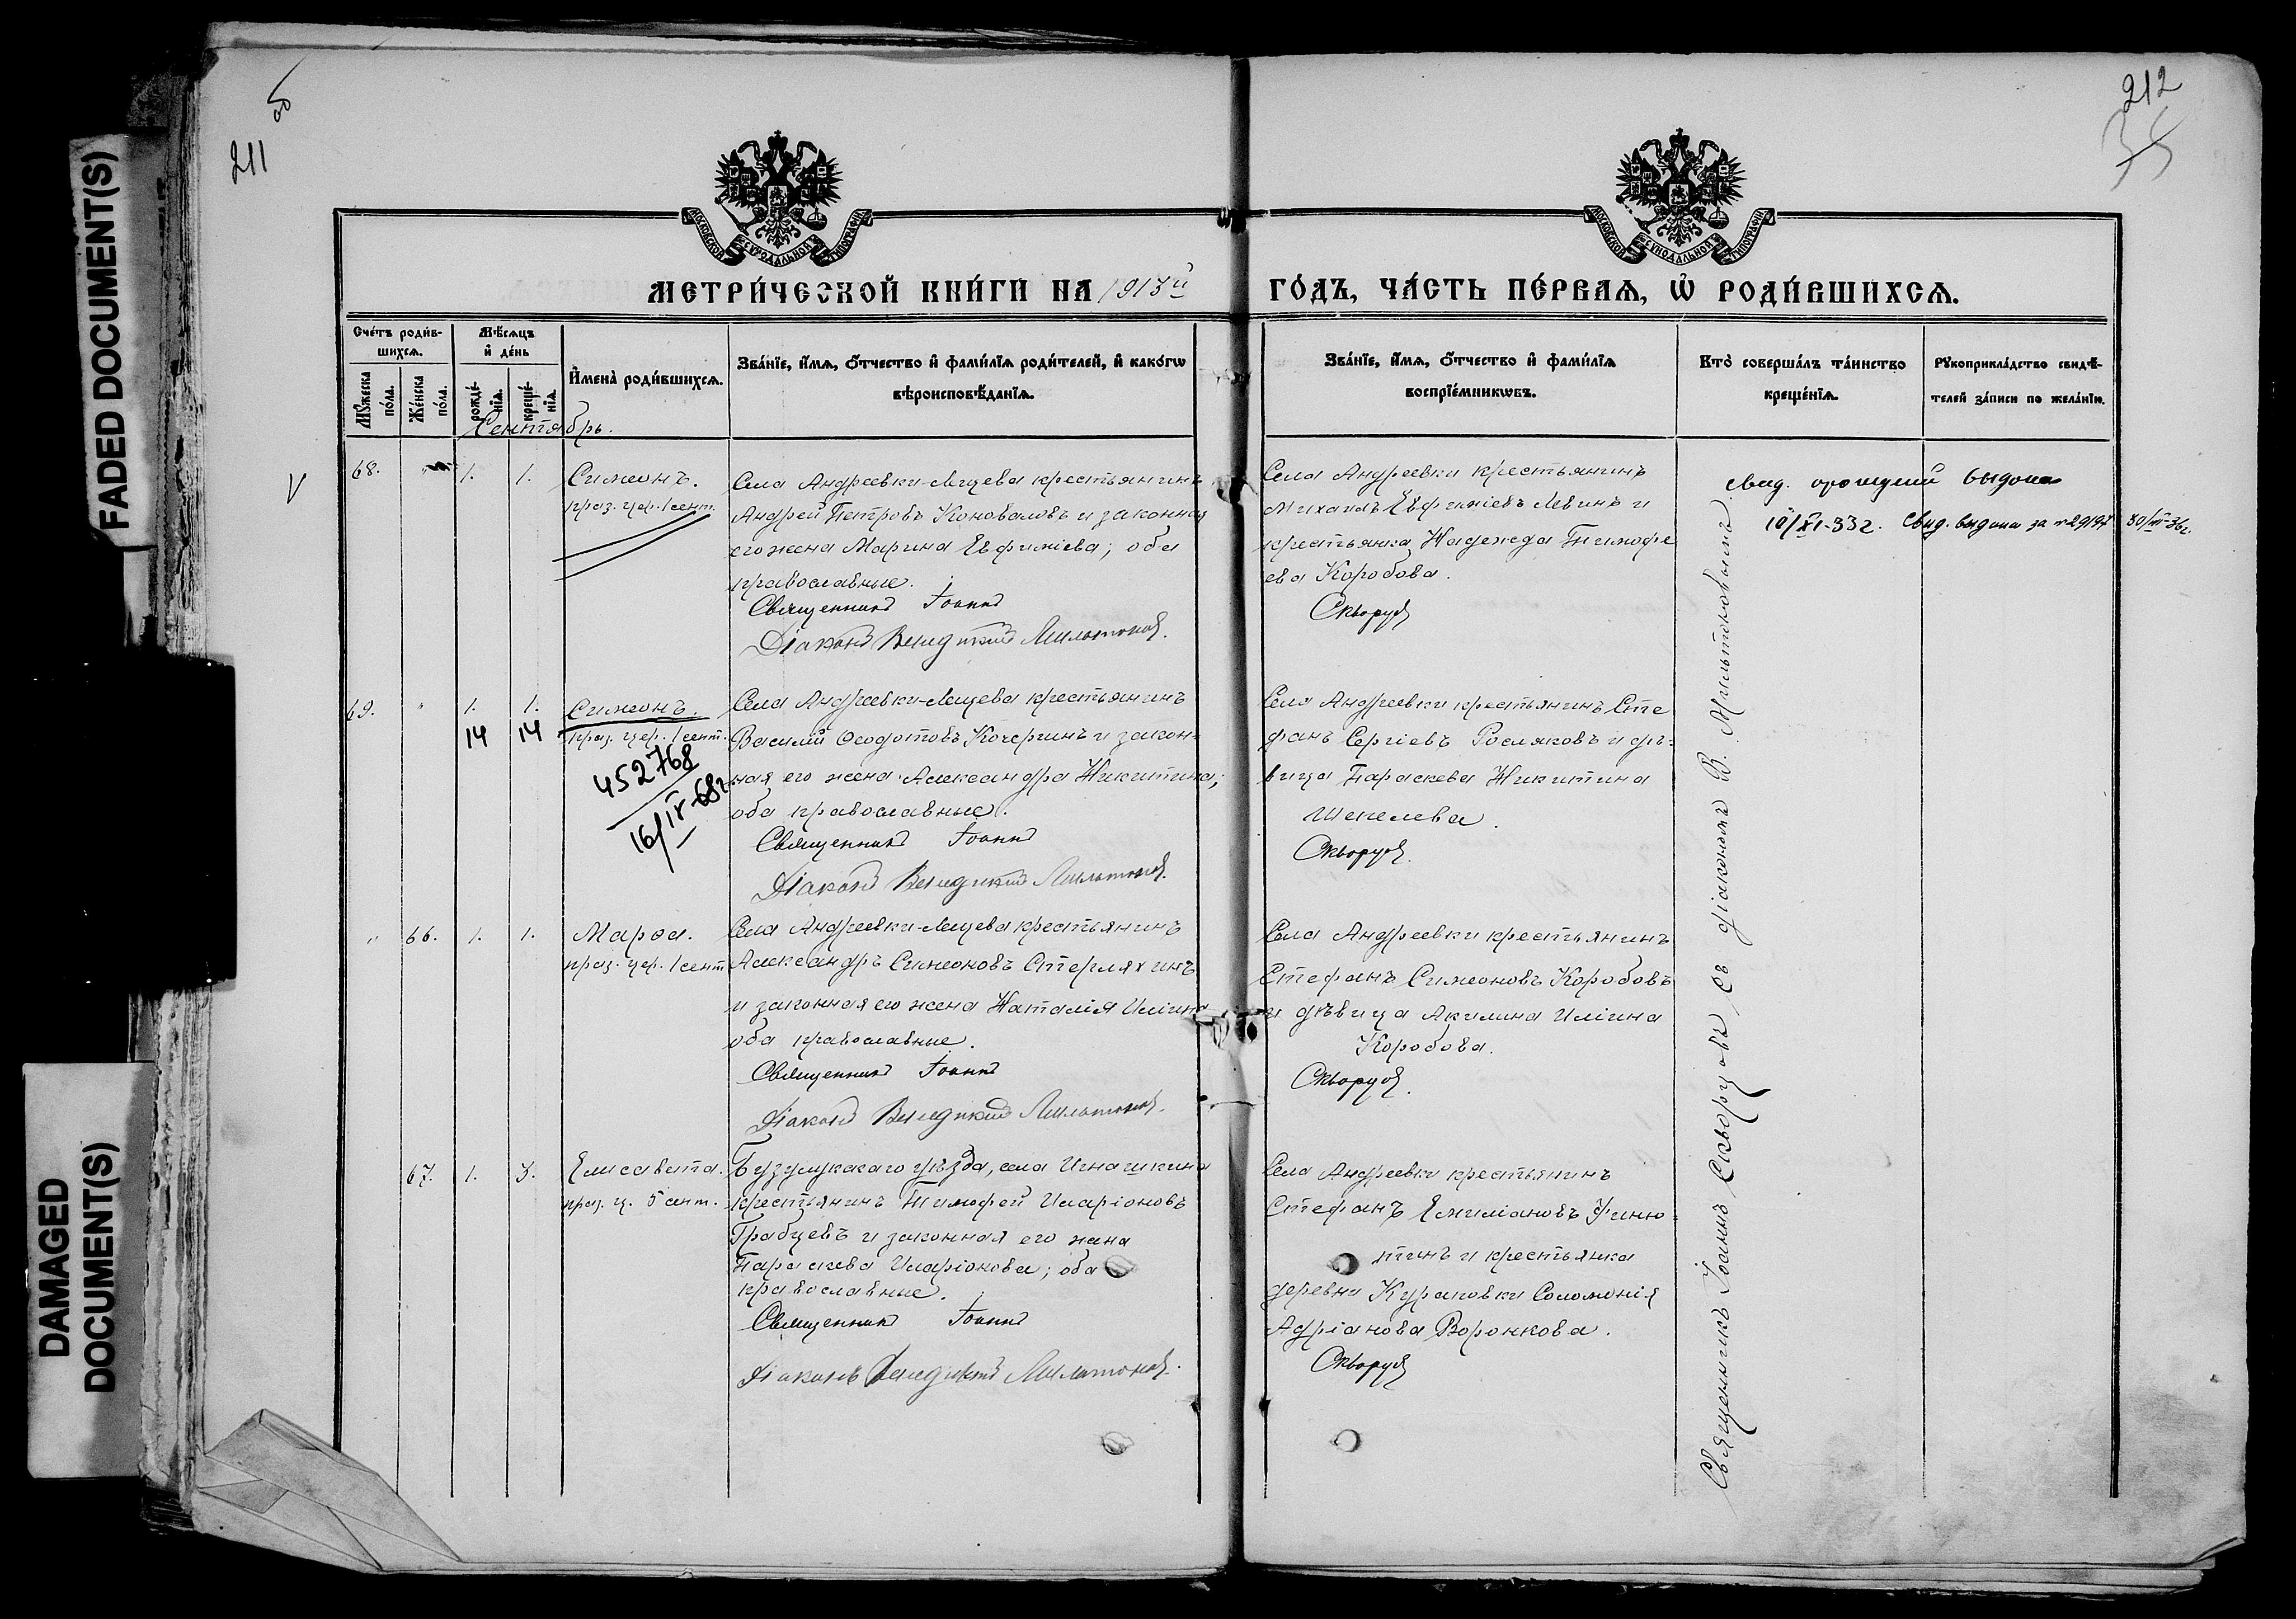 FADED DOCUMENT(S)
DAMAGED
DOCUMENT(S)
211
об
212
35
МОСКОВСКОЙ СѴНОДАЛЬНОЙ ТИПОГРАФІИ
МОСКОВСКОЙ СѴНОДАЛЬНОЙ ТИПОГРАФІИ
МЕТРИ́ЧЕСКОЙ КНИ́ГИ НА 1913й ГО́ДЪ, ЧА́СТЬ ПЕ́РВАѦ, Ѡ҆ РОДИ́ВШИХСѦ.
Сче́тъ роди́в-
шихсѧ.
Мꙋ́жеска
по́ла.
Же́нска
по́ла.
Мѣ́сѧцъ
и҆ де́нь
рожде́-
нїѧ.
креще́-
нїѧ.
И҆мена̀ роди́вшихсѧ.
Зва́нїе, и҆́мѧ, ѻ҆́тчество и҆ фами́лїѧ роди́телей, и҆ како́гѡ
вѣроисповѣ́данїѧ.
Зва́нїе, и҆́мѧ, ѻ҆́тчество и҆ фами́лїѧ
воспрїе́мникѡвъ.
Кто̀ соверша́лъ та́инство
креще́нїѧ.
Рꙋкоприкла́дство свидѣ́-
телей за́писи по жела́нїю.
Сентябрь.
V
68. " 1. 1. Симеонъ.
праз. цер. 1 сент.
Села Андреевки-Лещева крестьянинъ
Андрей Петровъ Коноваловъ и законная
его жена Марина Евфиміева; оба
православные.
Священникъ Іоаннъ
Діаконъ Венедиктъ Мильтоновъ.
Села Андреевки крестьянинъ
Михаилъ Евфиміевъ Левинъ и
крестьянка Надежда Тимофе
ева Коробова.
Скворцовъ
Свид. о рожден. выдано
10/XI-33г. Свид. выдано за № 29197 30/III-36г.
69. " 1. 1. Симеонъ.
14 14 праз. цер. 1 сент.
452768
16/IV-68г.
Села Андреевки-Лещева крестьянинъ
Василій Ѳеодотовъ Кочергинъ и закон-
ная его жена Александра Никитина;
оба православные.
Священникъ Іоаннъ
Діаконъ Венедиктъ Мильтоновъ.
Села Андреевки крестьянинъ Сте
фанъ Сергіевъ Росляковъ и дѣ-
вица Параскева Никитина
Шепелева.
Скворцовъ.
" 66. 1. 1. Марѳа.
праз. цер. 1 сент
Села Андреевки-Лещева крестьянинъ
Александръ Симеоновъ Стерляхинъ
и законная его жена Наталія Иліина
оба православные.
Священникъ Іоаннъ
Діаконъ Венедиктъ Мильтоновъ.
Села Андреевки крестьянинъ
Стефанъ Симеоновъ Коробовъ
и дѣвица Акилина Иліина
Коробова.
Скворцовъ.
67. 1. 5. Елисавета.
праз. ц. 5 сент.
Бузулукскаго уѣзда, села Игнашкина
крестьянинъ Тимофей Иларіоновъ
Грабцевъ и законная его жена
Параскева Иларіонова; оба
православные.
Священникъ Іоаннъ
Діаконъ Венедиктъ Мильтоновъ.
Села Андреевки крестьянинъ
Стефанъ Емиліановъ Финю-
тинъ и крестьянка
деревни Кураповки Соломонія
Адріанова Воронкова.
Скворцовъ
Священникъ Іоаннъ Скворцовъ съ діакономъ В. Мильтоновымъ